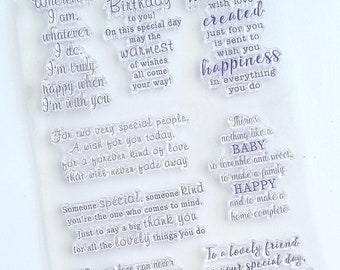 I am,
whatever
I do.
I'm truly
happy when
I'm with you
Birthday
to you!
On this special day
may the
warmest
of wishes
all come
your way!
with love
created
just for you
is sent to
wish you
happiness
in everything
you do
For two very special people,
A wish for you today,
for a forever kind of love
that will never fade away
There's
nothing like a
BABY
so loveable and sweet,
to make a family
HAPPY
and to make a
home complete.
Someone special, someone kind
you're the one who comes to mind.
Just to say a big thank you
for all the lovely things you do
To a lovely friend
your special day,
love can never